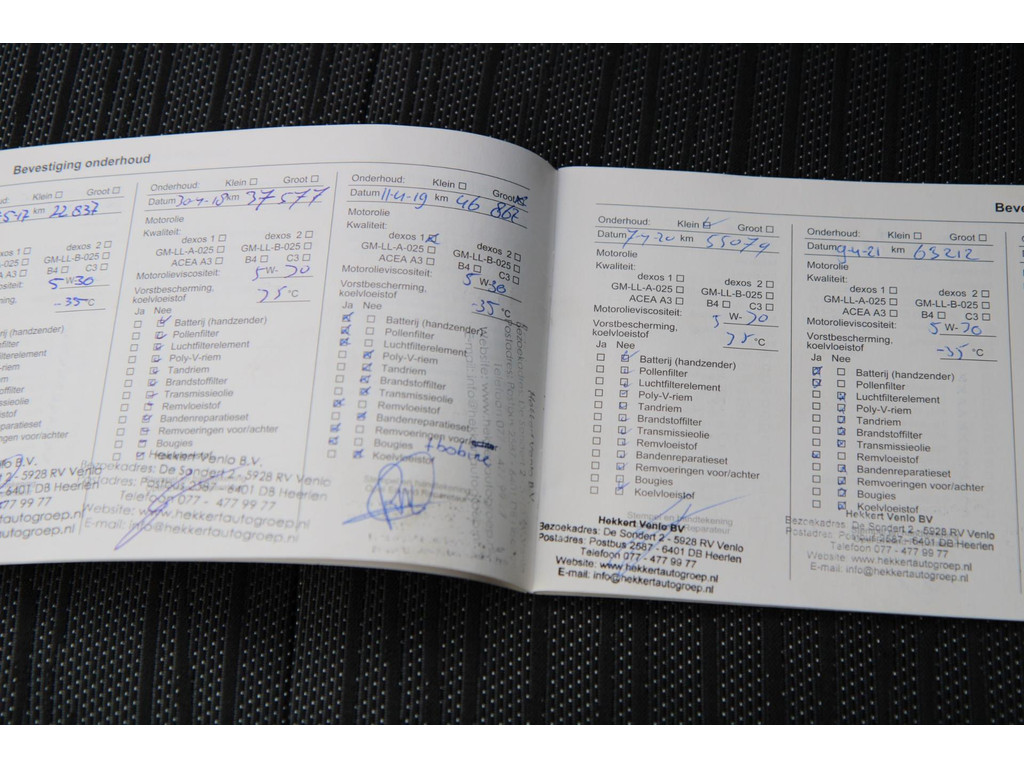 Bevestiging onderhoud
Klein ☐ Groot ☐
km 22.837
dexos 1 ☐ dexos 2 ☐
GM-LL-B-025 ☐
ACEA A3 ☐ B4 ☐ C3 ☐
5 W-30
-35°C
Onderhoud: Klein ☐ Groot ☐
Datum 30-4-18 km 37577
Motorolie
Kwaliteit:
dexos 1 ☐ dexos 2 ☐
GM-LL-A-025 ☐ GM-LL-B-025 ☐
ACEA A3 ☐ B4 ☐ C3 ☐
Motorolieviscositeit: 5 W-30
Vorstbescherming,
koelvloeistof 35 °C
Ja Nee
Batterij (handzender)
Pollenfilter
Luchtfilterelement
Poly-V-riem
Tandriem
Brandstoffilter
Transmissieolie
Remvloeistof
Bandenreparatieset
Remvoeringen voor/achter
Bougies
Venlo B.V.
Bezoekadres: De Sondert 2 - 5928 RV Venlo
Postadres: Postbus 2587 - 6401 DB Heerlen
Telefoon 077 - 477 99 77
Website: www.hekkertautogroep.nl
E-mail: info@hekkertautogroep.nl
Onderhoud: Klein ☐ Groot ☒
Datum 11-4-19 km 46 867
Motorolie
Kwaliteit:
dexos 1 ☒ dexos 2 ☐
GM-LL-A-025 ☐ GM-LL-B-025 ☐
ACEA A3 ☐ B4 ☐ C3 ☐
Motorolieviscositeit: 5 W-30
Vorstbescherming,
koelvloeistof -35 °C
Ja Nee
Batterij (handzender)
Pollenfilter
Luchtfilterelement
Poly-V-riem
Tandriem
Brandstoffilter
Transmissieolie
Remvloeistof
Bandenreparatieset
Remvoeringen voor/
Bougies + bobine
Koelvloeistof
Beve
Onderhoud: Klein ☑ Groot ☐
Datum 7-4-20 km 55079
Motorolie
Kwaliteit:
dexos 1 ☐ dexos 2 ☐
GM-LL-A-025 ☐ GM-LL-B-025 ☐
ACEA A3 ☐ B4 ☐ C3 ☐
Motorolieviscositeit: 5 W-30
Vorstbescherming,
koelvloeistof 38 °C
Ja Nee
Batterij (handzender)
Pollenfilter
Luchtfilterelement
Poly-V-riem
Tandriem
Brandstoffilter
Transmissieolie
Remvloeistof
Bandenreparatieset
Remvoeringen voor/achter
Bougies
Koelvloeistof
Stempel en handtekening
Hekkert Venlo BV
Bezoekadres: De Sondert 2 - 5928 RV Venlo
Postadres: Postbus 2587 - 6401 DB Heerlen
Telefoon 077 - 477 99 77
Website: www.hekkertautogroep.nl
E-mail: info@hekkertautogroep.nl
Onderhoud: Klein ☐ Groot ☐
Datum 9-4-21 km 63212
Motorolie
Kwaliteit:
dexos 1 ☐ dexos 2 ☐
GM-LL-A-025 ☐ GM-LL-B-025 ☐
ACEA A3 ☐ B4 ☐ C3 ☐
Motorolieviscositeit: 5 W-30
Vorstbescherming,
koelvloeistof -35 °C
Ja Nee
Batterij (handzender)
Pollenfilter
Luchtfilterelement
Poly-V-riem
Tandriem
Brandstoffilter
Transmissieolie
Remvloeistof
Bandenreparatieset
Remvoeringen voor/achter
Bougies
Koelvloeistof
Hekkert Venlo BV
Bezoekadres: De Sondert 2 - 5928 RV Venlo
Postadres: Postbus 2587 - 6401 DB Heerlen
Telefoon 077 - 477 99 77
Website: www.hekkertautogroep.nl
E-mail: info@hekkertautogroep.nl